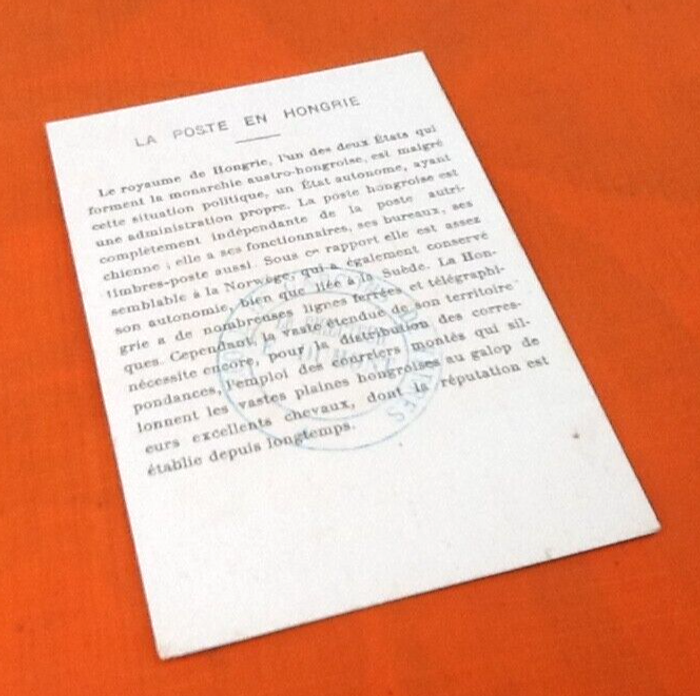 LA POSTE EN HONGRIE
Le royaume de Hongrie, l'un des deux États qui
forment la monarchie austro-hongroise, est malgré
cette situation politique, un État autonome, ayant
une administration propre. La poste hongroise est
complètement indépendante de la poste autri-
chienne ; elle a ses fonctionnaires, ses bureaux, ses
timbres-poste aussi. Sous ce rapport elle est assez
semblable à la Norwège, qui a également conservé
son autonomie, bien que liée à la Suède. La Hon-
grie a de nombreuses lignes ferrées et télégraphi-
ques. Cependant, la vaste étendue de son territoire
nécessite encore, pour la distribution des corres-
pondances, l'emploi des courriers montés qui sil-
lonnent les vastes plaines hongroises au galop de
eurs excellents chevaux, dont la réputation est
établie depuis longtemps.